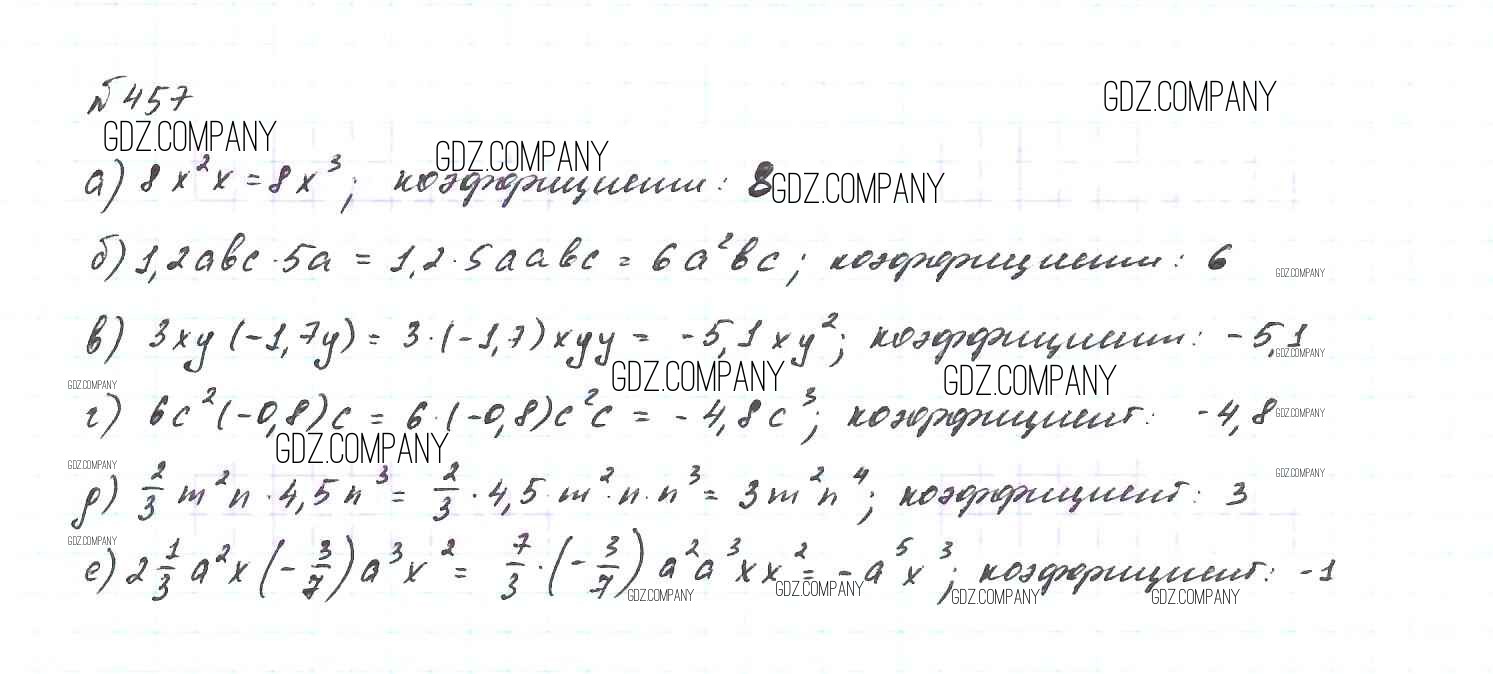 №457
GDZ.COMPANY
GDZ.COMPANY
GDZ.COMPANY
а) 8x²x = 8x³; коэффициент: 8
GDZ.COMPANY
б) 1,2abc · 5a = 1,2 · 5aabc = 6a²bc; коэффициент: 6
GDZ.COMPANY
в) 3xy(-1,7y) = 3·(-1,7)xyy = -5,1xy²; коэффициент: -5,1
GDZ.COMPANY
GDZ.COMPANY
GDZ.COMPANY
GDZ.COMPANY
г) 6c²(-0,8)c = 6·(-0,8)c²c = -4,8c³; коэффициент: -4,8
GDZ.COMPANY
GDZ.COMPANY
GDZ.COMPANY
GDZ.COMPANY
д) 2/3 m²n · 4,5n³ = 2/3 · 4,5 · m² · n · n³ = 3m²n⁴; коэффициент: 3
GDZ.COMPANY
е) 2 1/3 a²x(-3/7)a³x² = 7/3 · (-3/7)a²a³xx² = -a⁵x³; коэффициент: -1
GDZ.COMPANY
GDZ.COMPANY
GDZ.COMPANY
GDZ.COMPANY